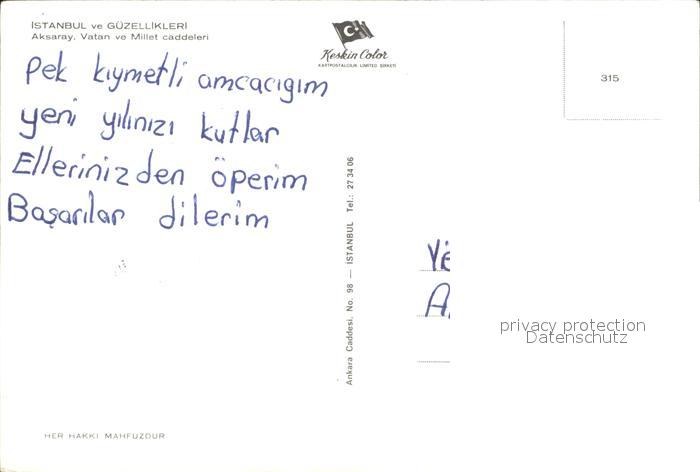 İSTANBUL ve GÜZELLİKLERİ
Aksaray, Vatan ve Millet caddeleri
Keskin Color
KARTPOSTALCILIK LİMİTED ŞİRKETİ
315
Pek kıymetli amcacıgım
yeni yılınızı kutlar
Ellerinizden öperim
Başarılar dilerim
Ankara Caddesi, No. 98 — İSTANBUL Tel.: 27 34 06
privacy protection
Datenschutz
HER HAKKI MAHFUZDUR